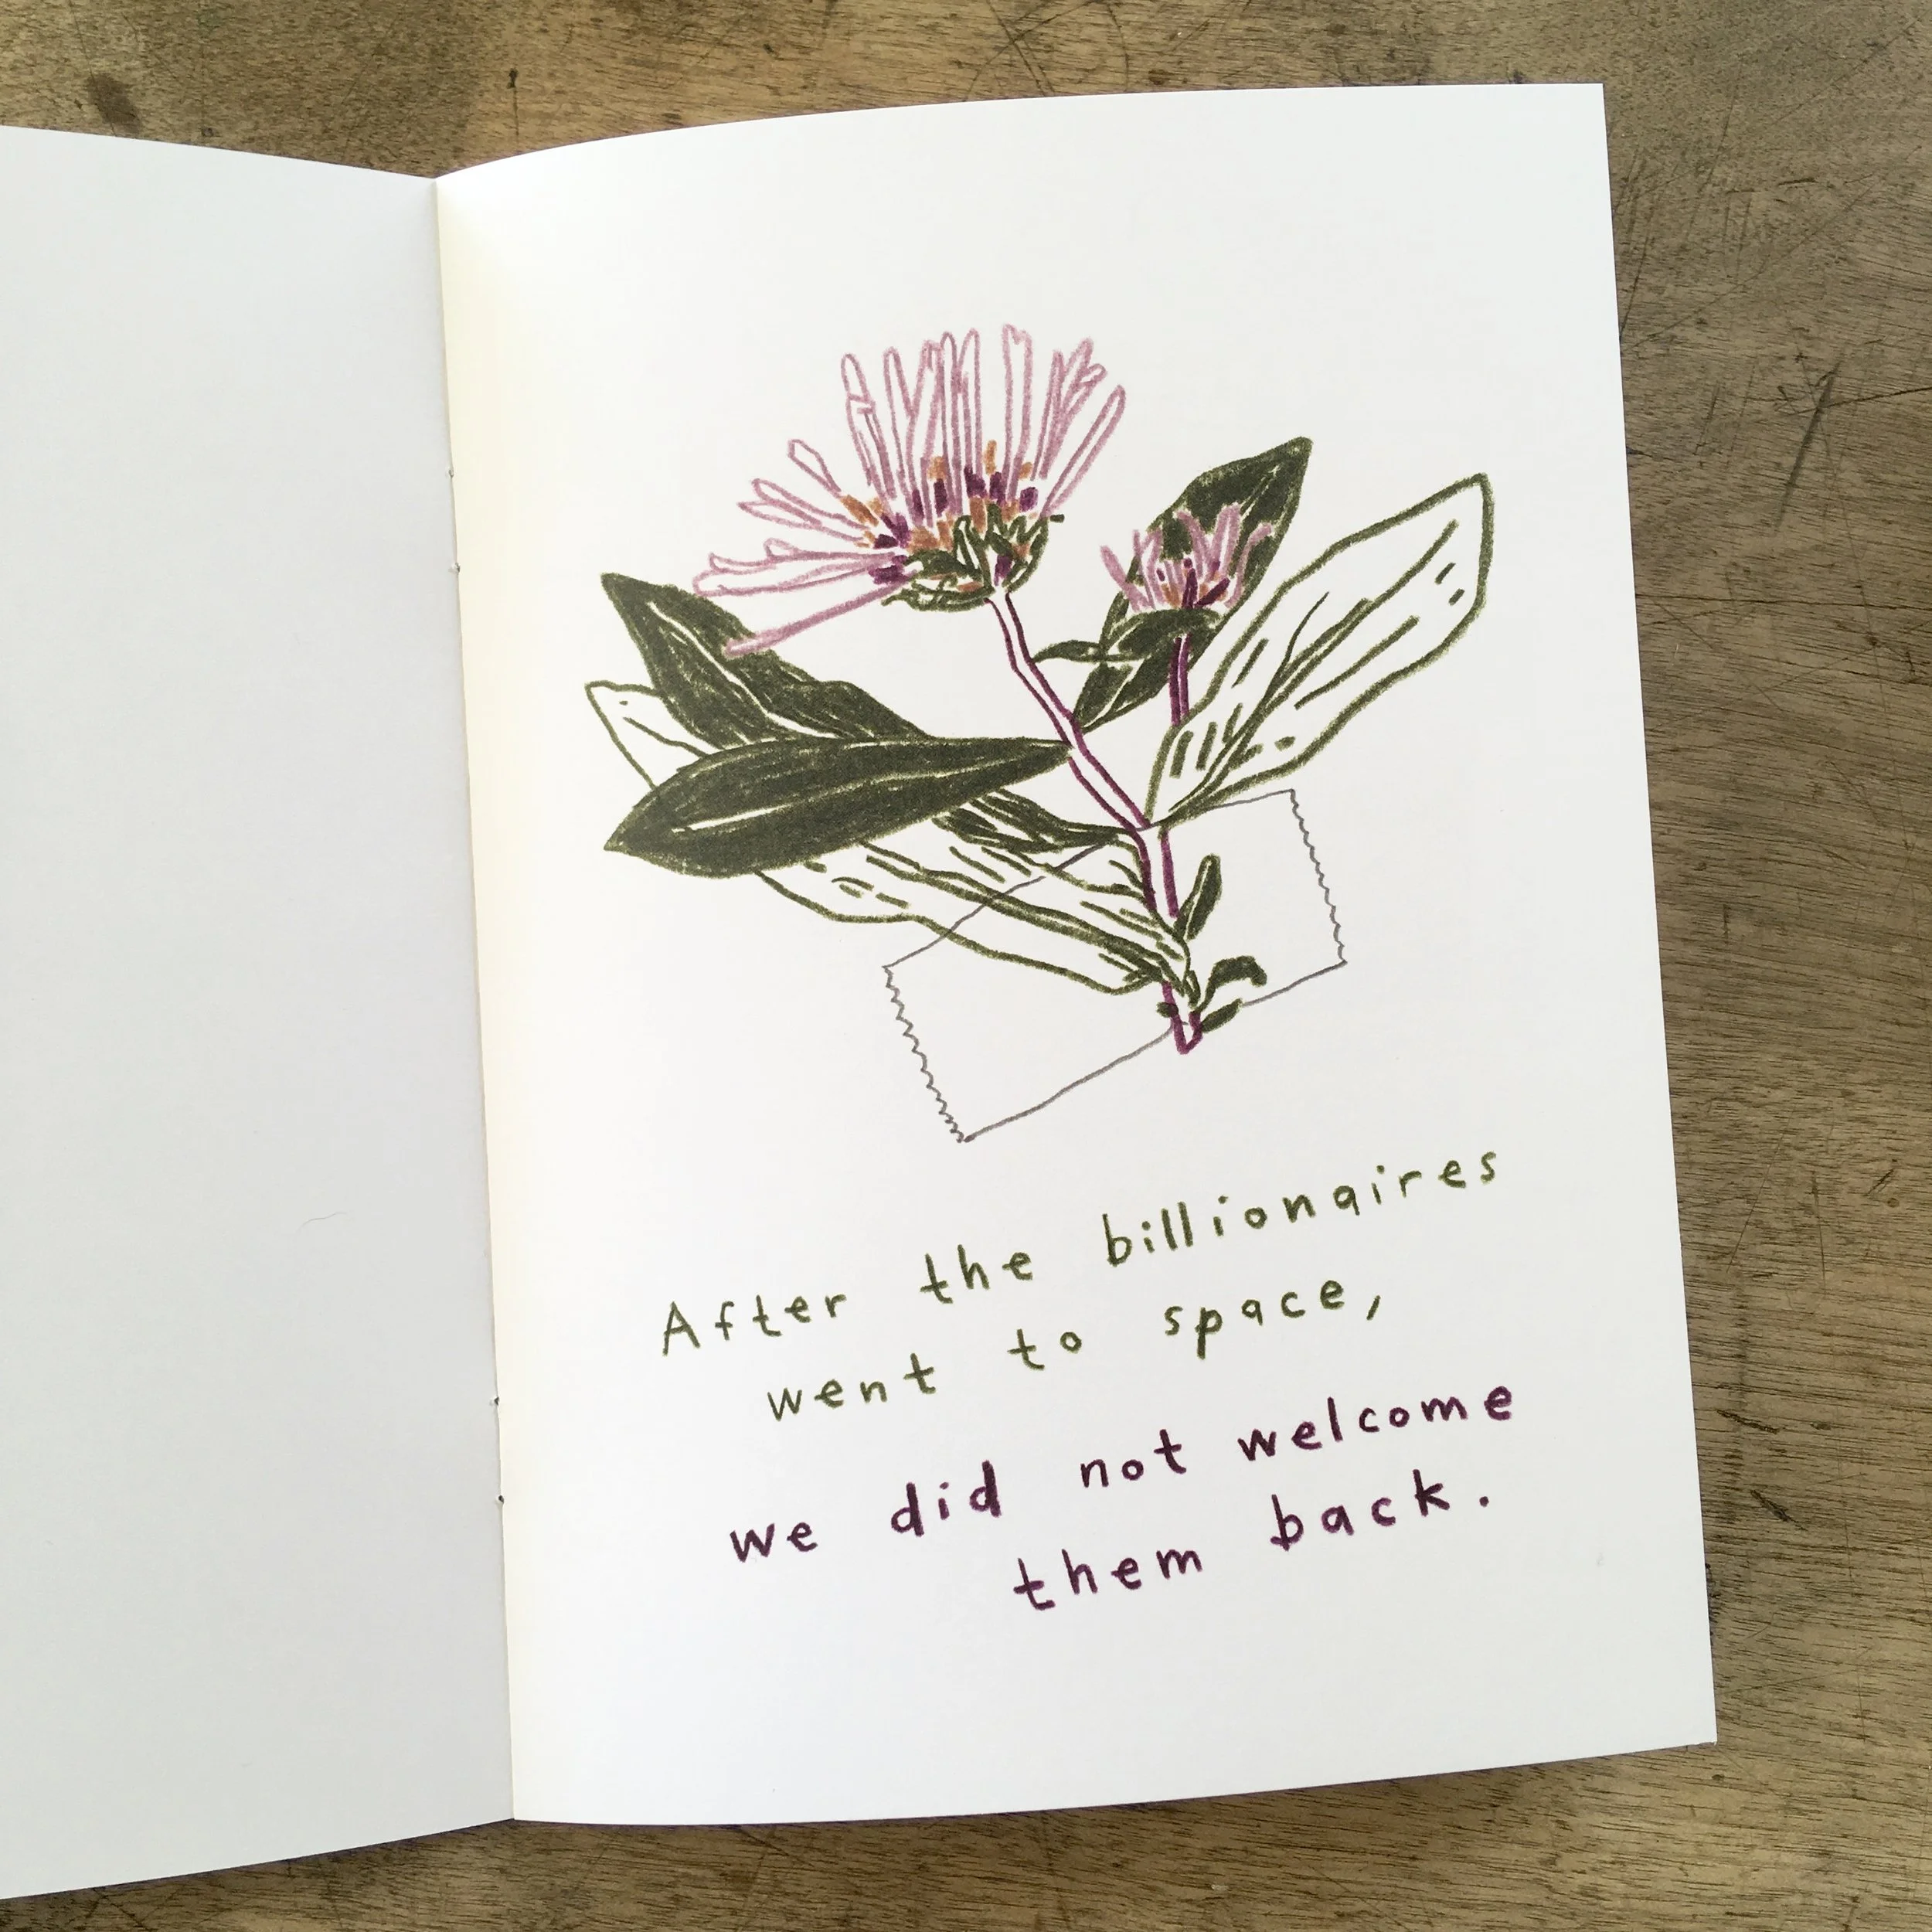 After the billionaires
went to space,
we did not welcome
them back.